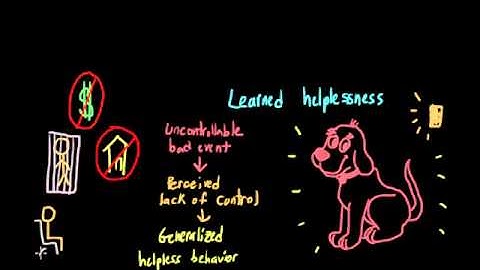 $
Learned helplessness
Uncontrollable
bad event
Perceived
lack of control
Generalized
helpless behavior